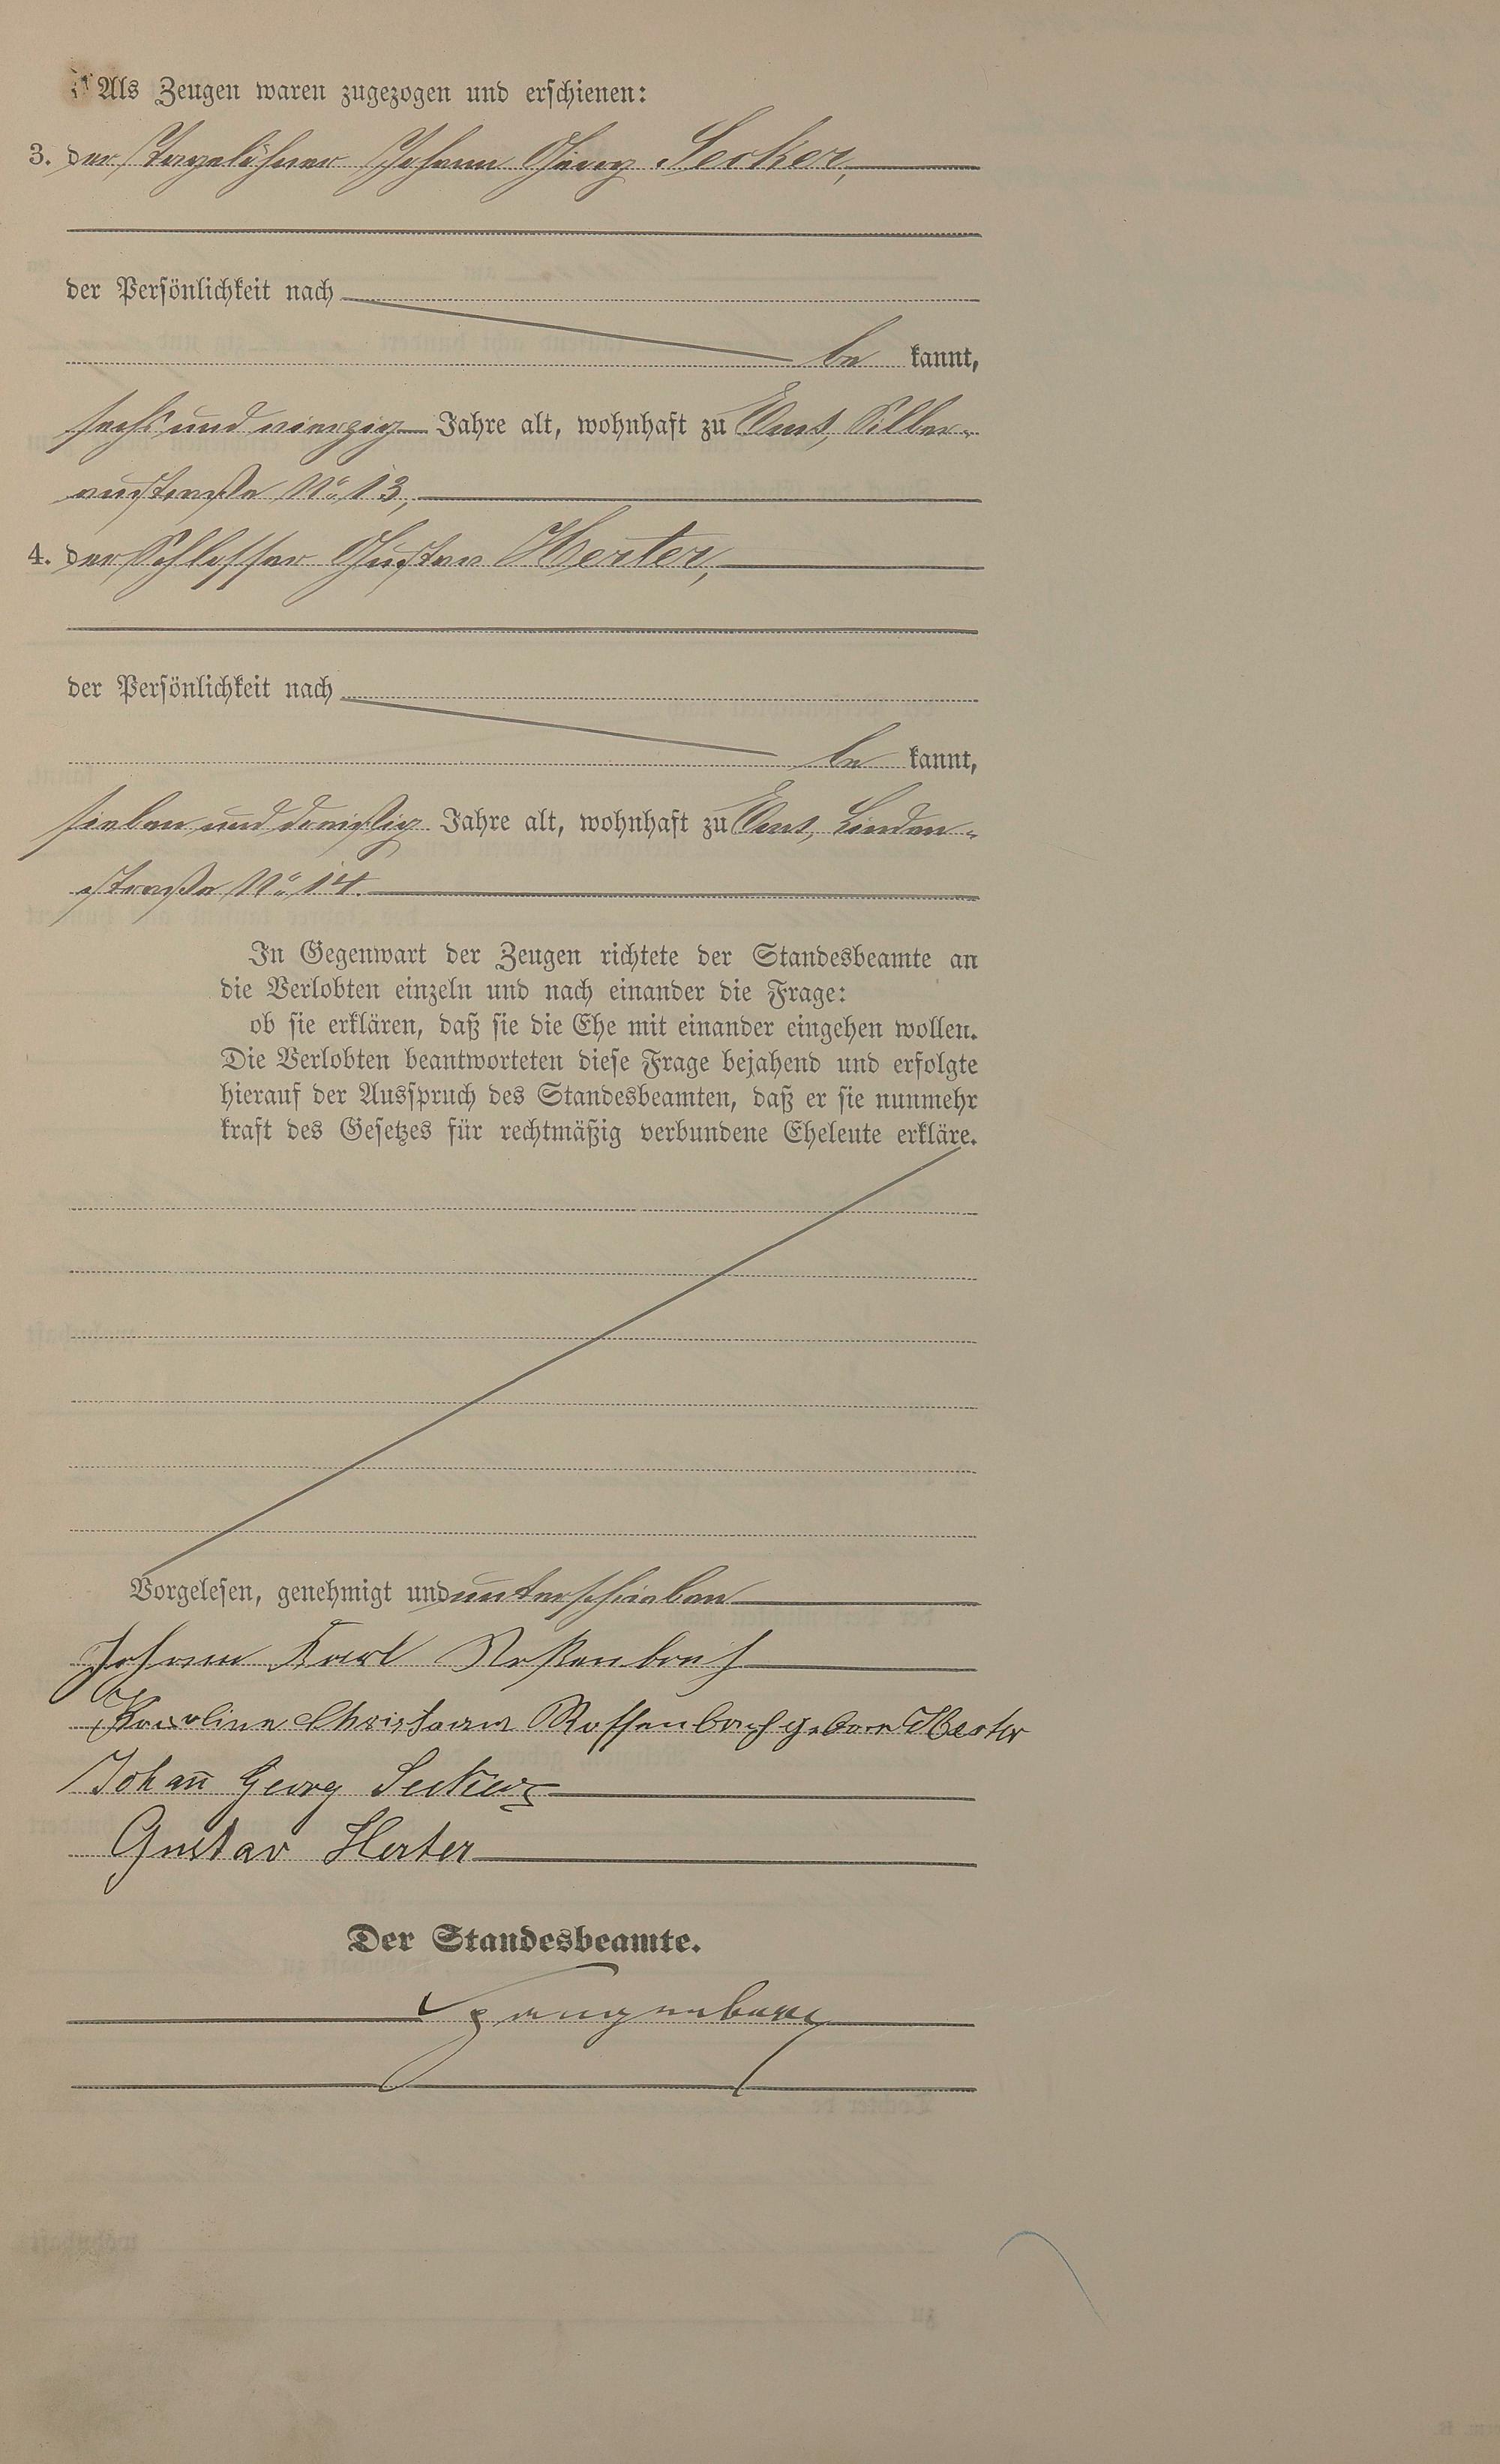 Als Zeugen waren zugezogen und erschienen:
3. der Tagelöhner Johann Georg Secker,
der Persönlichkeit nach
be kannt,
sechs und vierzig Jahre alt, wohnhaft zu Ems, Silber-
austraße No 13,
4. der Schlosser Gustav Herter,
der Persönlichkeit nach
be kannt,
sieben und dreißig Jahre alt, wohnhaft zu Ems, Linden-
straße No 14.
In Gegenwart der Zeugen richtete der Standesbeamte an
die Verlobten einzeln und nach einander die Frage:
ob sie erklären, daß sie die Ehe mit einander eingehen wollen.
Die Verlobten beantworteten diese Frage bejahend und erfolgte
hierauf der Ausspruch des Standesbeamten, daß er sie nunmehr
kraft des Gesetzes für rechtmäßig verbundene Eheleute erkläre.
Vorgelesen, genehmigt und unterschrieben
Johann Karl Roßenbach
Karoline Christiane Rossenbach geborn Herter
Johan̄ Georg Secker
Gustav Herter
Der Standesbeamte.
Spangenberg